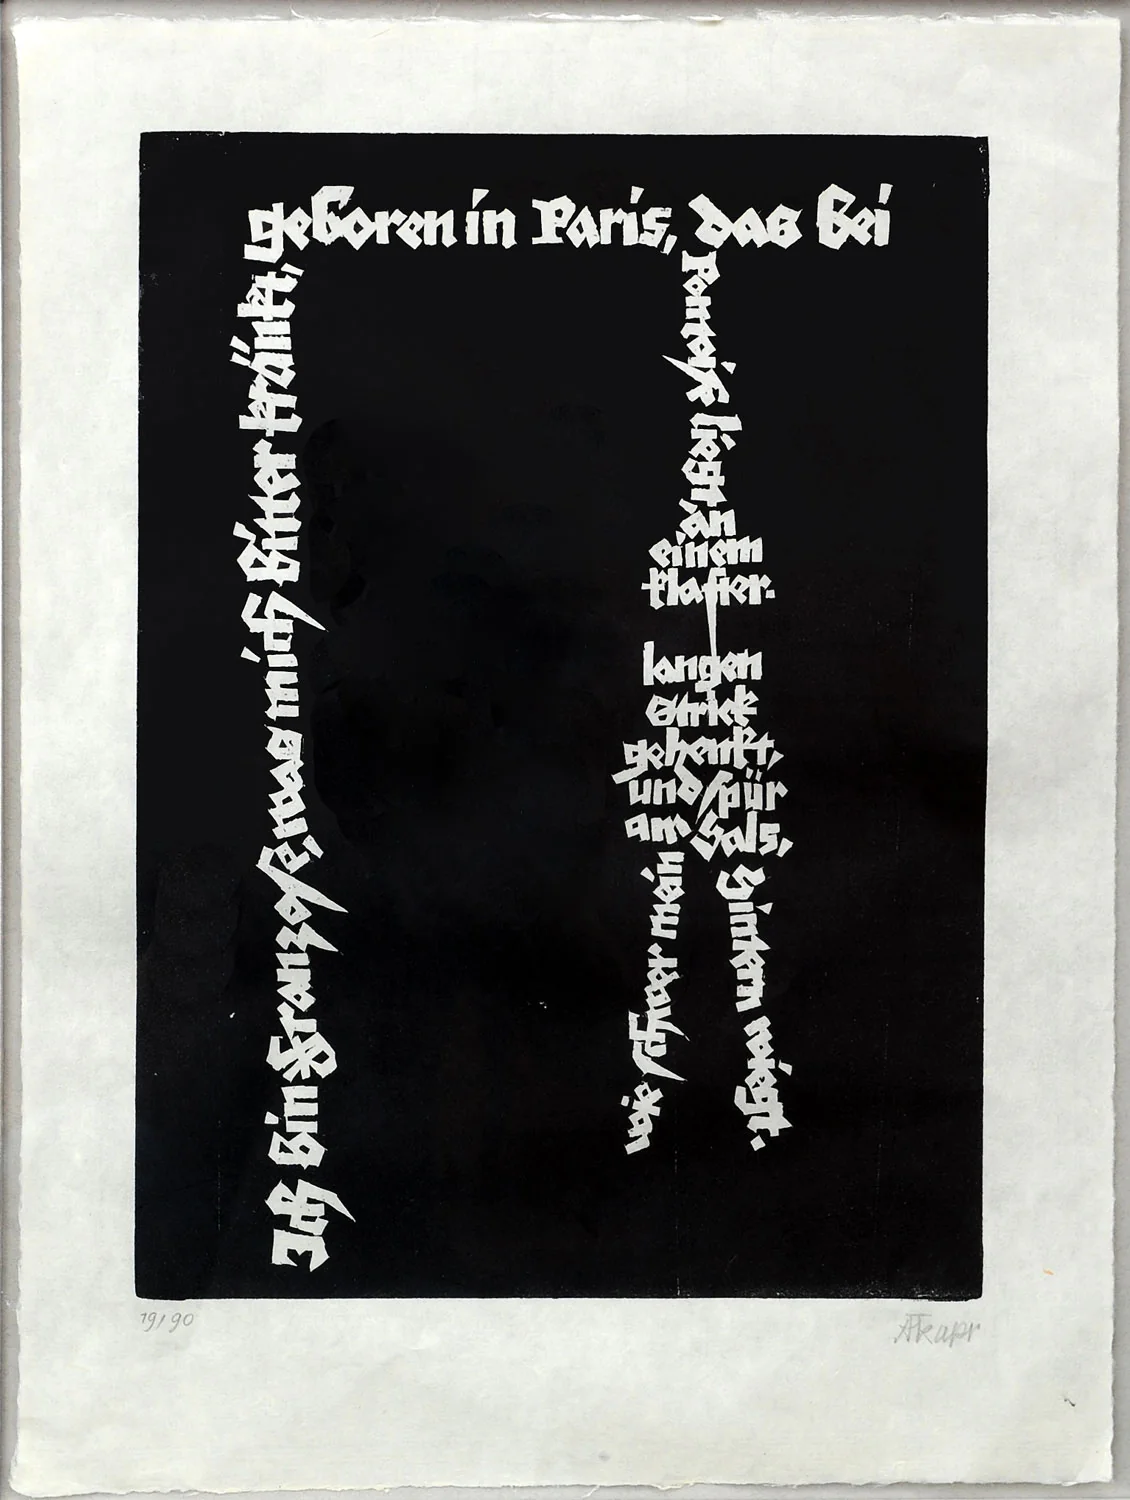 Ich bin Franzose, was mich bitter kränkt,
geboren in Paris, das bei
Pontoise liegt
an
einem
klafter-
langen
Strick
gehenkt,
und spür
am Hals,
wie schwer mein
Hintern wiegt.
19/90
AKapr